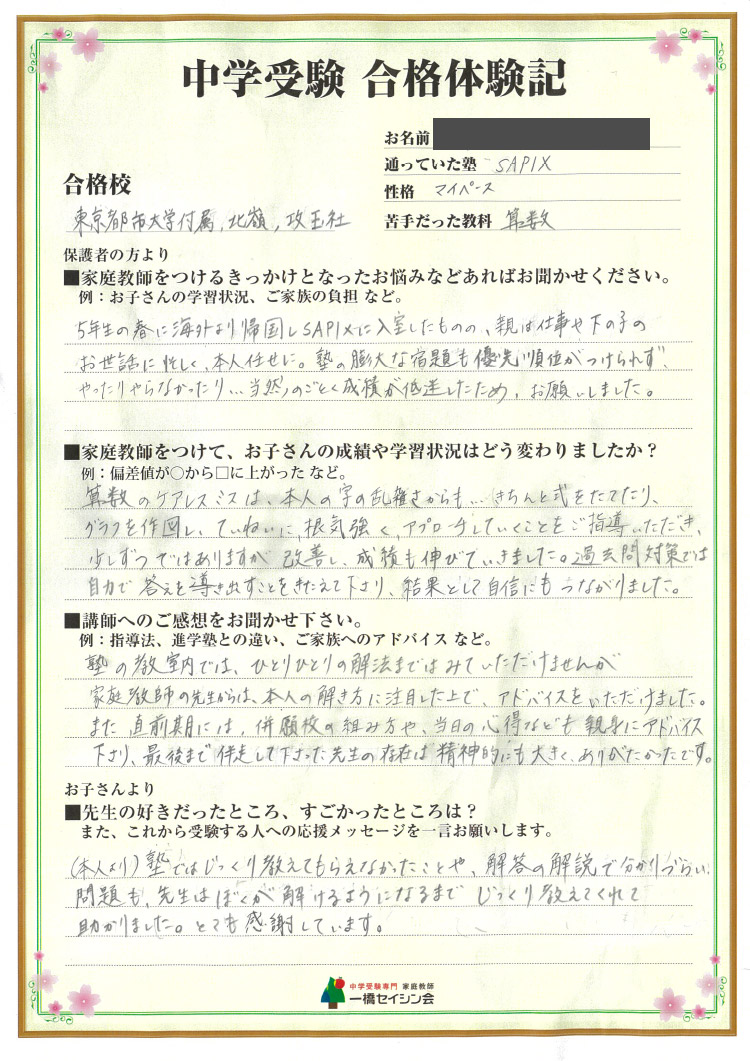 中学受験 合格体験記
お名前
通っていた塾 SAPIX
合格校
性格 マイペース
東京都市大学付属, 北嶺, 攻玉社
苦手だった教科 算数
保護者の方より
■家庭教師をつけるきっかけとなったお悩みなどあればお聞かせください。
例：お子さんの学習状況、ご家族の負担 など。
5年生の春に海外より帰国しSAPIXに入室したものの、親は仕事や下の子の
お世話に忙しく、本人任せに。塾の膨大な宿題も優先順位がつけられず、
やったりやらなかったり…当然のごとく成績が低迷したため、お願いしました。
■家庭教師をつけて、お子さんの成績や学習状況はどう変わりましたか？
例：偏差値が○から□に上がった など。
算数のケアレスミスは、本人の字の乱雑さからも…きちんと式をたてたり、
グラフを作図し、ていねいに、根気強く、アプローチしていくことをご指導いただき、
少しずつではありますが 改善し、成績も伸びていきました。過去問対策では
自力で答えを導き出すことをきたえて下さり、結果として自信にもつながりました。
■講師へのご感想をお聞かせ下さい。
例：指導法、進学塾との違い、ご家族へのアドバイス など。
塾の教室内では、ひとりひとりの解法まではみていただけませんが
家庭教師の先生からは、本人の解き方に注目した上で、アドバイスをいただけました。
また 直前期には、併願校の組み方や、当日の心得なども 親身にアドバイス
下さり、最後まで伴走して下さった先生の存在は精神的にも大きく、ありがたかったです。
お子さんより
■先生の好きだったところ、すごかったところは？
また、これから受験する人への応援メッセージを一言お願いします。
(本人より) 塾ではじっくり教えてもらえなかったことや、解答の解説で分かりづらい
問題も、先生はぼくが解けるようになるまで じっくり教えてくれて
助かりました。とても感謝しています。
中学受験専門 家庭教師
一橋セイシン会